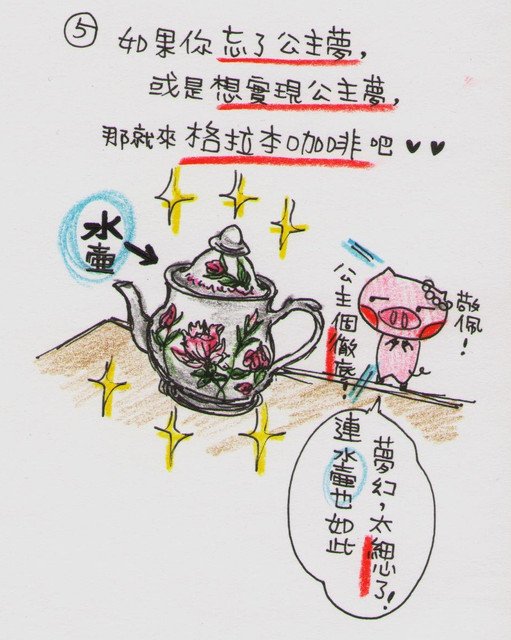 ⑤ 如果你忘了公主夢,
或是想實現公主夢,
那就來格拉李咖啡吧♥♥
水壺
公主個徹底!
敬佩!
夢幻,太細心了!
連水壺也如此